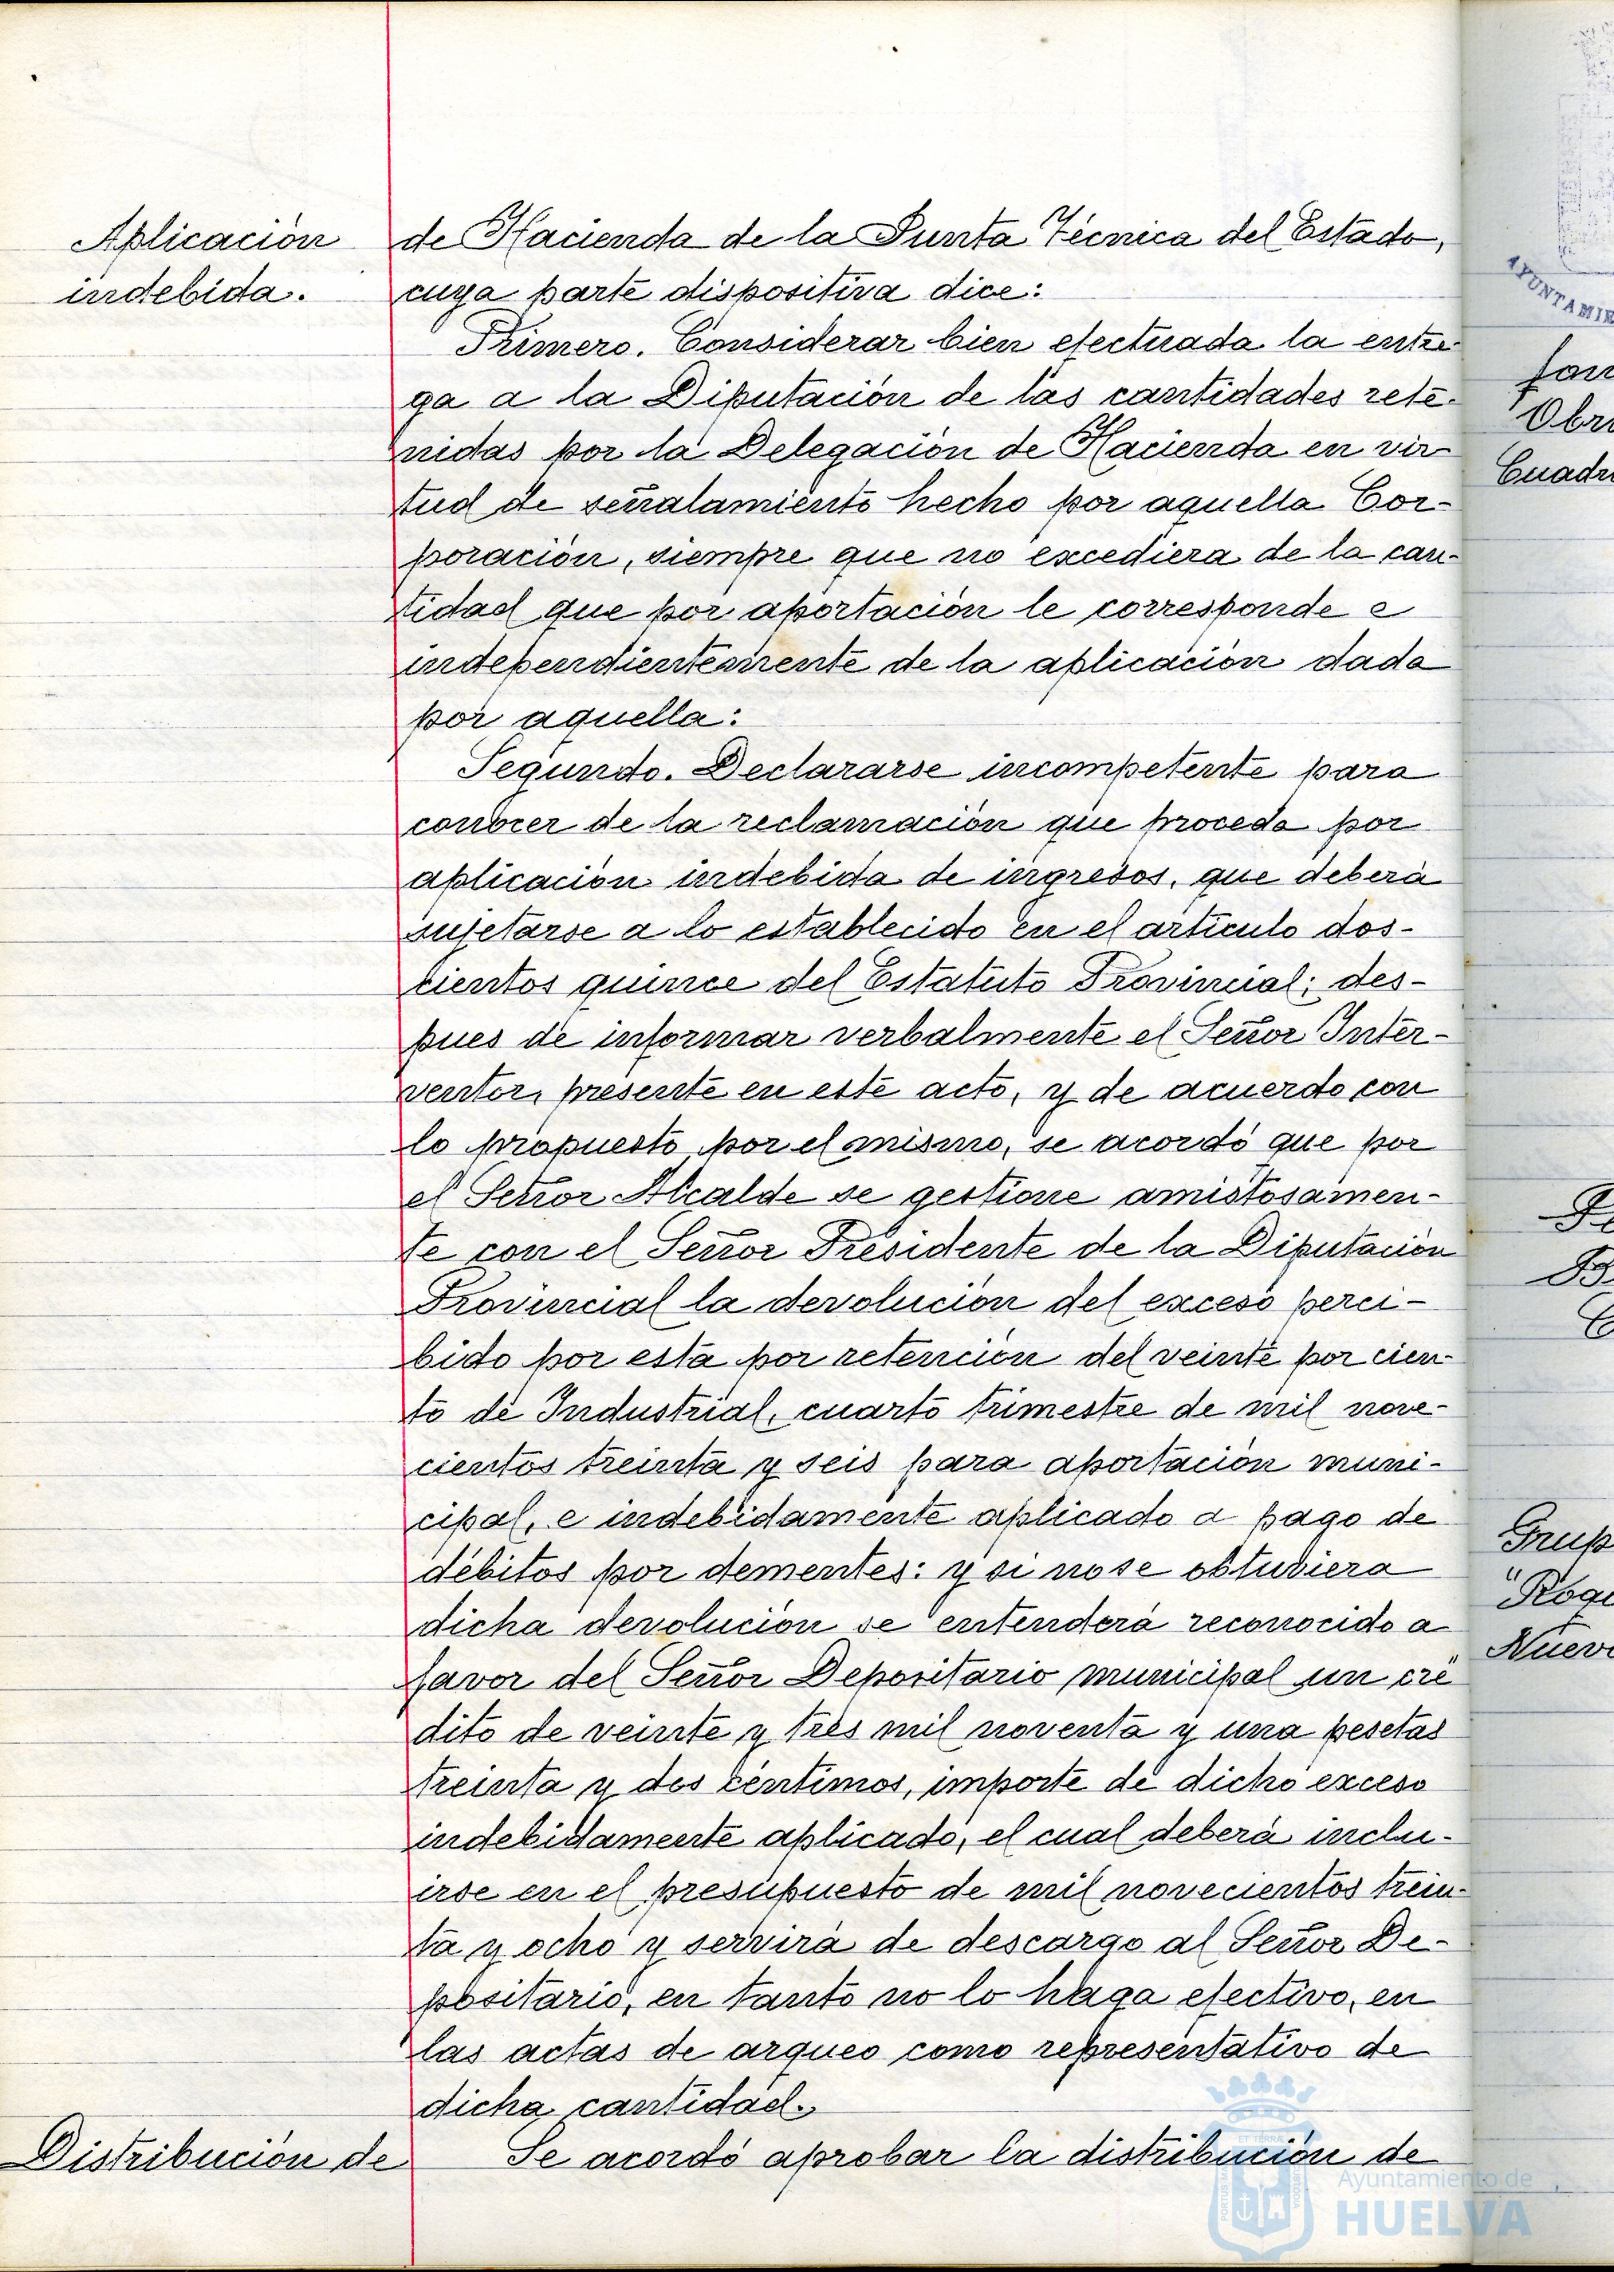 Aplicación
indebida.
de Hacienda de la Junta Técnica del Estado,
cuya parte dispositiva dice:
Primero. Considerar bien efectuada la entre-
ga a la Diputación de las cantidades rete-
nidas por la Delegación de Hacienda en vir-
tud de señalamiento hecho por aquella Cor-
poración, siempre que no excediera de la can-
tidad que por aportación le corresponde e
independientemente de la aplicación dada
por aquella:
Segundo. Declararse incompetente para
conocer de la reclamación que proceda por
aplicación indebida de ingresos, que deberá
sujetarse a lo establecido en el artículo dos-
cientos quince del Estatuto Provincial; des-
pues de informar verbalmente el Señor Inter-
ventor, presente en este acto, y de acuerdo con
lo propuesto por el mismo, se acordó que por
el Señor Alcalde se gestione amistosamen-
te con el Señor Presidente de la Diputación
Provincial la devolución del exceso perci-
bido por esta por retención del veinte por cien-
to de Industrial, cuarto trimestre de mil nove-
cientos treinta y seis para aportación muni-
cipal, e indebidamente aplicado a pago de
débitos por dementes: y si no se obtuviera
dicha devolución se entenderá reconocido a
favor del Señor Depositario municipal un cré
dito de veinte y tres mil noventa y una pesetas
treinta y dos céntimos, importe de dicho exceso
indebidamente aplicado, el cual deberá inclu-
irse en el presupuesto de mil novecientos trein-
ta y ocho y servirá de descargo al Señor De-
positario, en tanto no lo haga efectivo, en
las actas de arqueo como representativo de
dicha cantidad.
Distribución de
Se acordó aprobar la distribución de
Ayuntamiento de
HUELVA
AYUNTAMIE
Obr
Cuadr
Grup
"Roge
Nuev